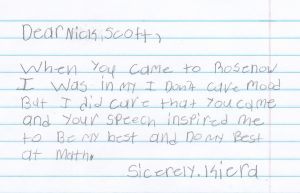 Dear Nick, Scott,
When you came to Rosenow
I was in my I Don't cure mood
But I did cure that you came
and your speech inspired me
to Be my best and Do my Best
at Math.
Sicerely. Kierd